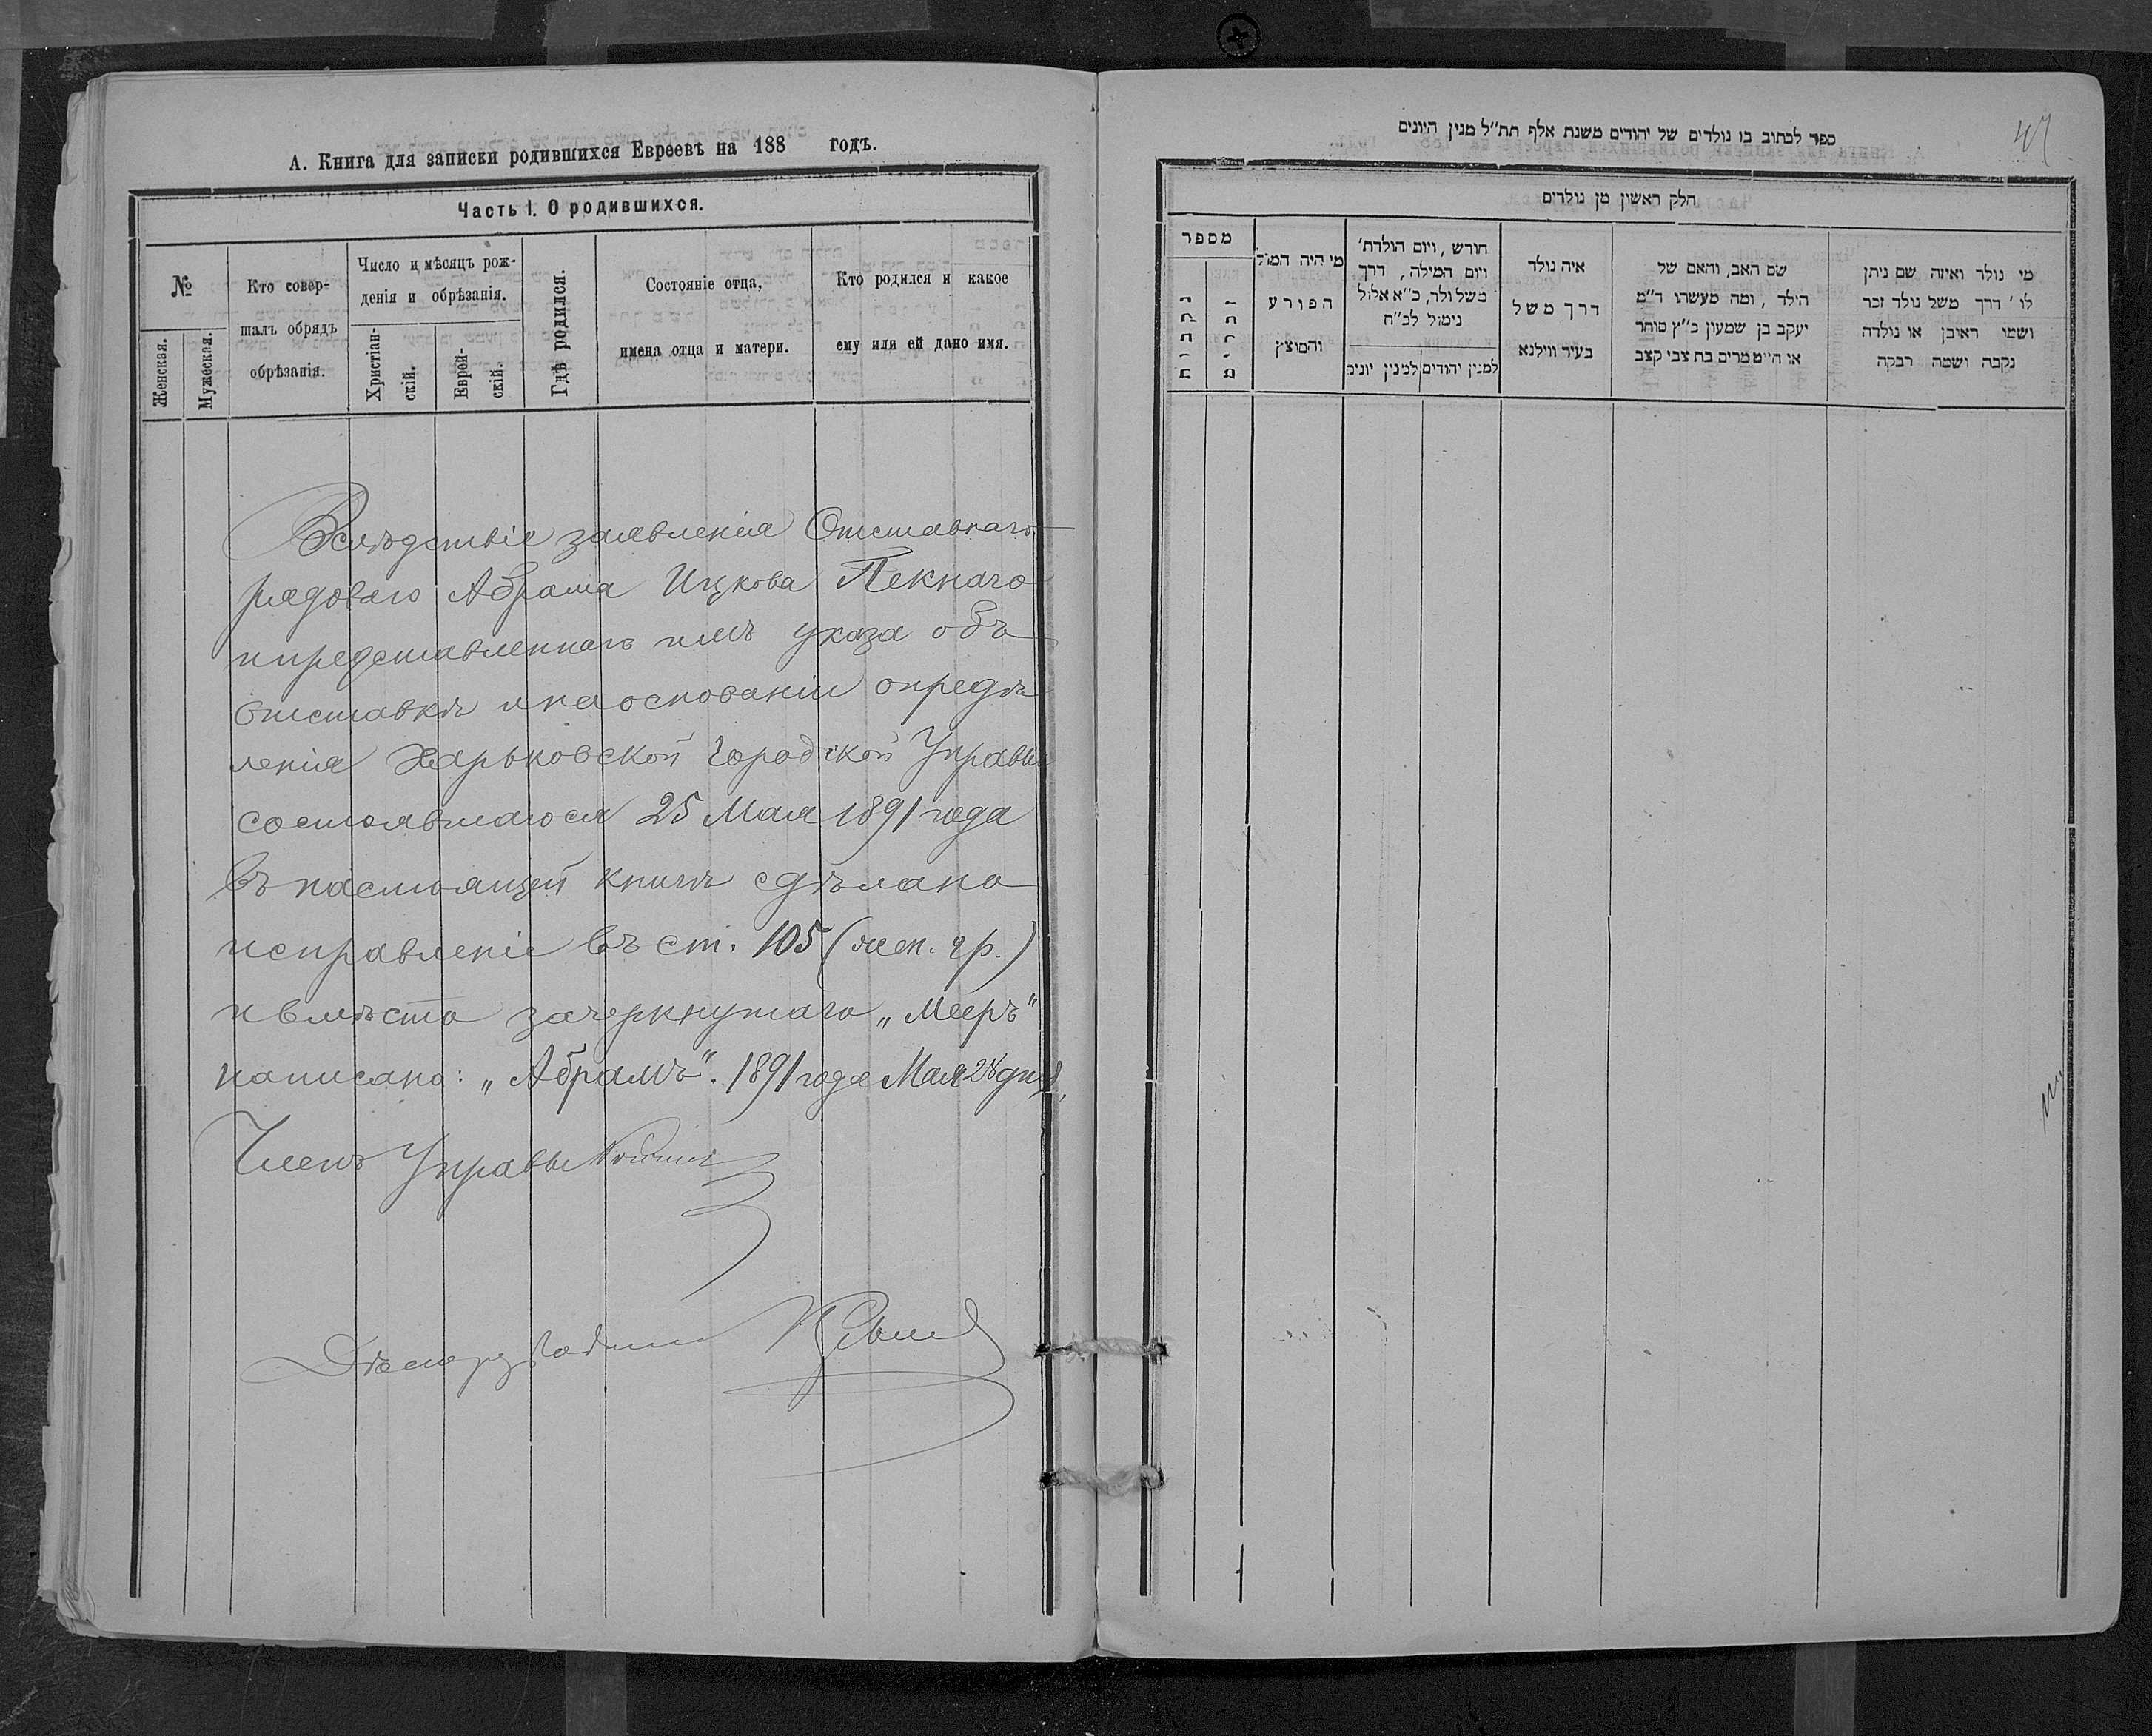 А. Книга для записки родившихся Евреевъ на 188 годъ.
Часть I. О родившихся.
№
Женская.
Мужеская.
Кто совер-
шалъ обрядъ
обрѣзанія.
Число и мѣсяцъ рож-
денія и обрѣзанія.
Христіан-
скій.
Еврей-
скій.
Гдѣ родился.
Состояніе отца,
имена отца и матери.
Кто родился и какое
ему или ей дано имя.
Вслѣдствіе заявленія Отставнаго
рядоваго Абрама Ицкова Пекнаго
и представленнаго имъ указа объ
отставкѣ и на основаніи опредѣ
ленія Харьковской Городской Управы
состоявшагося 25 Мая 1891 года
въ настоящей книгѣ сдѣлано
исправленіе въ ст. 105 (жен. гр.)
и вмѣсто зачеркнутаго „Мееръ"
написано: „Абрамъ". 1891 года Мая 28 дня,
Членъ Управы
Дѣлопроизводитель
ספר לכתוב בו נולדים של יהודים משנת אלף תת״ל מנין היונים
47
חלק ראשון מן נולדים
מספר
נקבות
זכרים
מי היה המול
הפורע
והמוצץ
חודש, ויום הולדת׳
ויום המילה, דרך
משל ולד, כ״א אלול
נימול לכ״ח
למנין יהודים
למנין יונים
איה נולד
דרך משל
בעיר ווילנא
שם האב, והאם של
הילד, ומה מעשהו ד״מ
יעקב בן שמעון כ״ץ סוחר
או חי״ט מרים בת צבי קצב
מי נולד ואיזה שם ניתן
לו׳ דרך משל נולד זכר
ושמו ראיבן או נולדה
נקבה ושמה רבקה